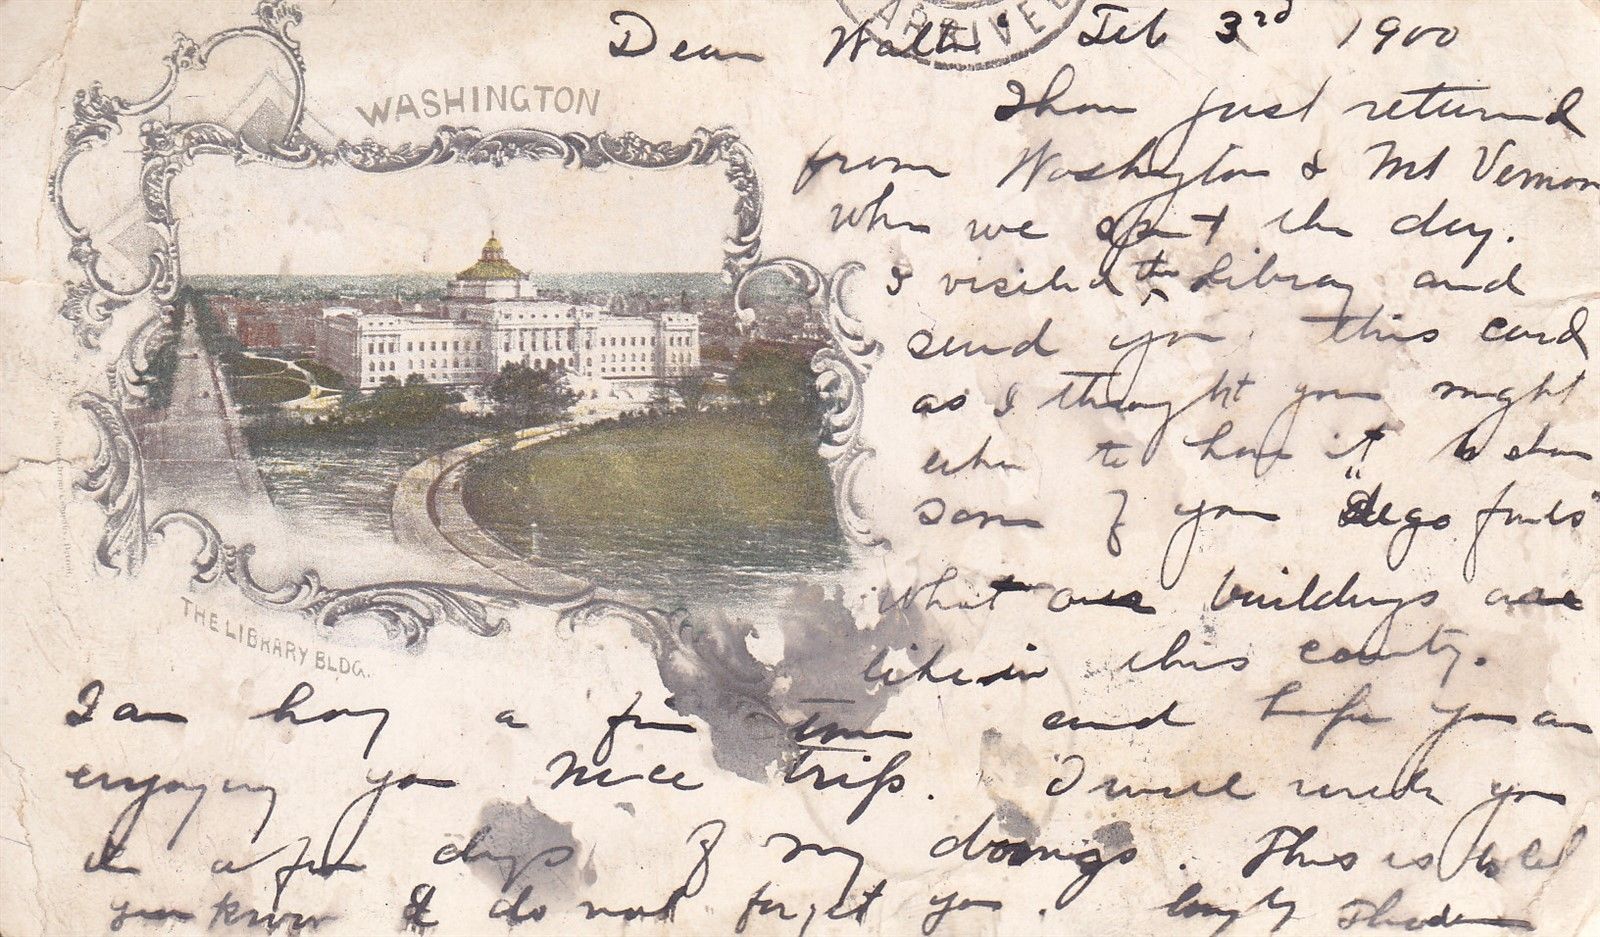 ARRIVED
Dear Walter Feb 3rd 1900
WASHINGTON
I have just returned
from Washington & Mt Vernon
when we spent the day.
I visited the Library and
send you this card
as I thought you might
like to have it to show
some of your
what our buildings are
like in this country.
THE LIBRARY BLDG.
I am having a fine time and hope you are
enjoying your nice trip. I will write you
in a few days of my doings. This is to let
you know I do not forget you.